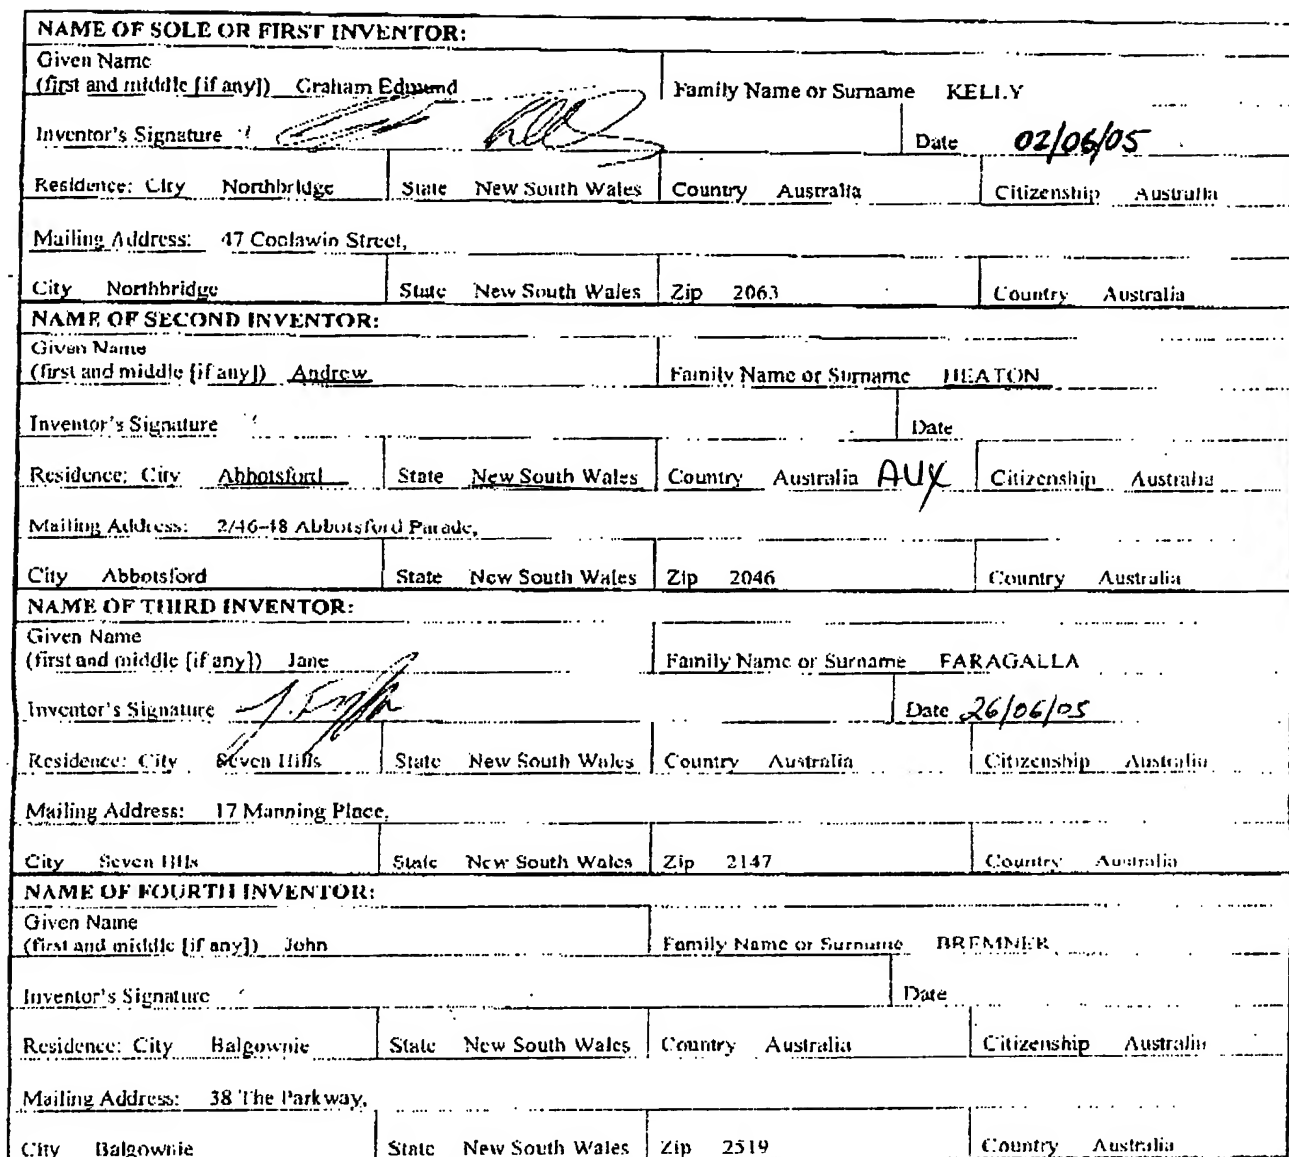 NAME OF SOLE OR FIRST INVENTOR:
Given Name
(first and middle [if any]) Graham Edmund Family Name or Surname KELLY
Inventor's Signature Date 02/06/05
Residence: City Northbridge State New South Wales Country Australia Citizenship Australia
Mailing Address: 47 Coolawin Street,
City Northbridge State New South Wales Zip 2063 Country Australia
NAME OF SECOND INVENTOR:
Given Name
(first and middle [if any]) Andrew Family Name or Surname HEATON
Inventor's Signature Date
Residence: City Abbotsford State New South Wales Country Australia AUX Citizenship Australia
Mailing Address: 2/46-48 Abbotsford Parade,
City Abbotsford State New South Wales Zip 2046 Country Australia
NAME OF THIRD INVENTOR:
Given Name
(first and middle [if any]) Jane Family Name or Surname FARAGALLA
Inventor's Signature Date 26/06/05
Residence: City Seven Hills State New South Wales Country Australia Citizenship Australia
Mailing Address: 17 Manning Place,
City Seven Hills State New South Wales Zip 2147 Country Australia
NAME OF FOURTH INVENTOR:
Given Name
(first and middle [if any]) John Family Name or Surname BREMNER
Inventor's Signature Date
Residence: City Balgownie State New South Wales Country Australia Citizenship Australia
Mailing Address: 38 The Parkway,
City Balgownie State New South Wales Zip 2519 Country Australia